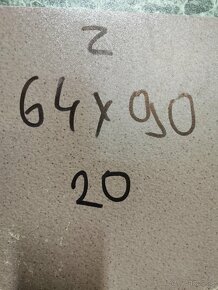 2
64x90
20